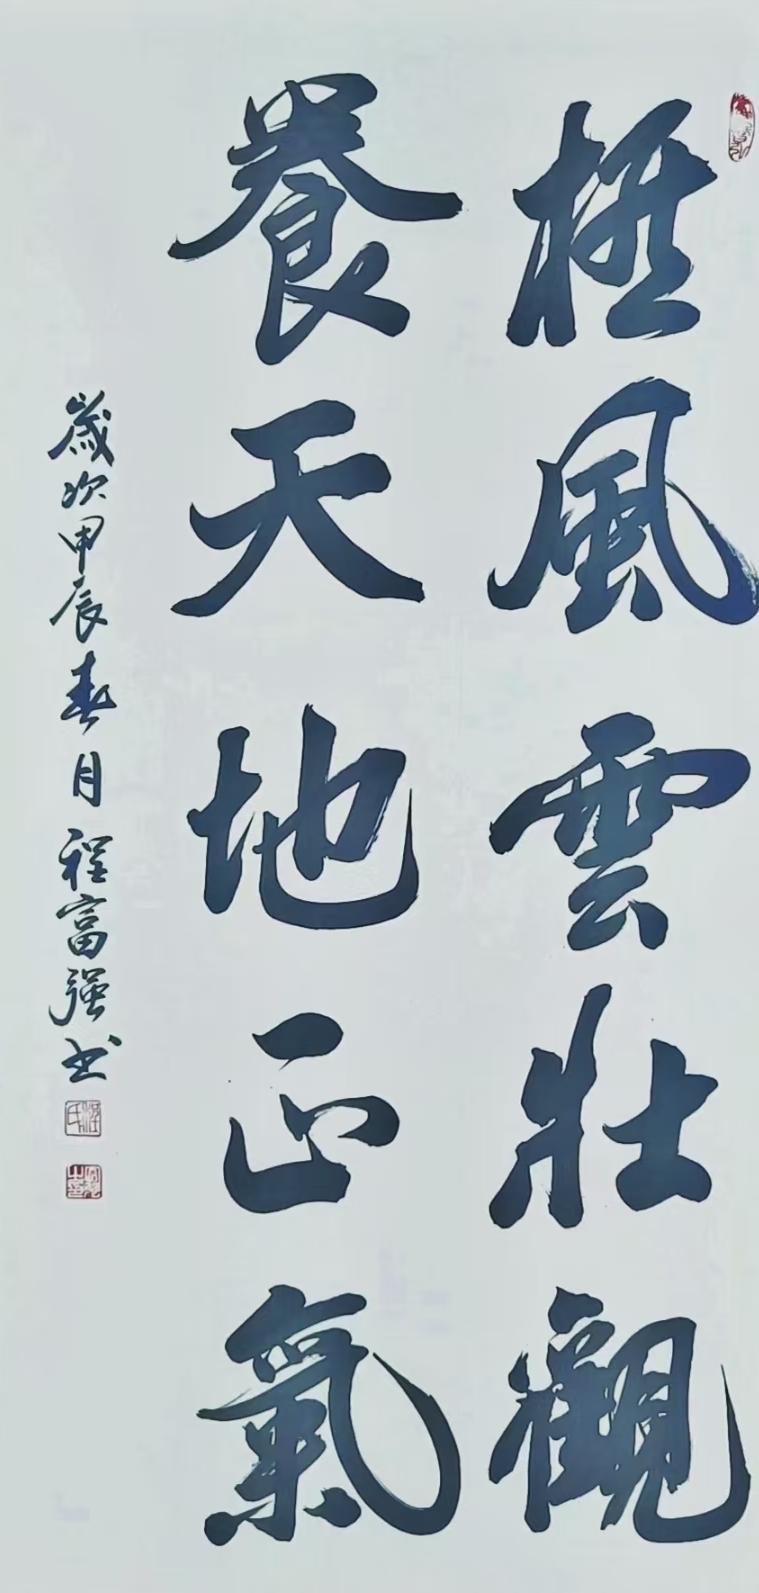 極風雲壯觀
養天地正氣
歲次甲辰春月程富强书